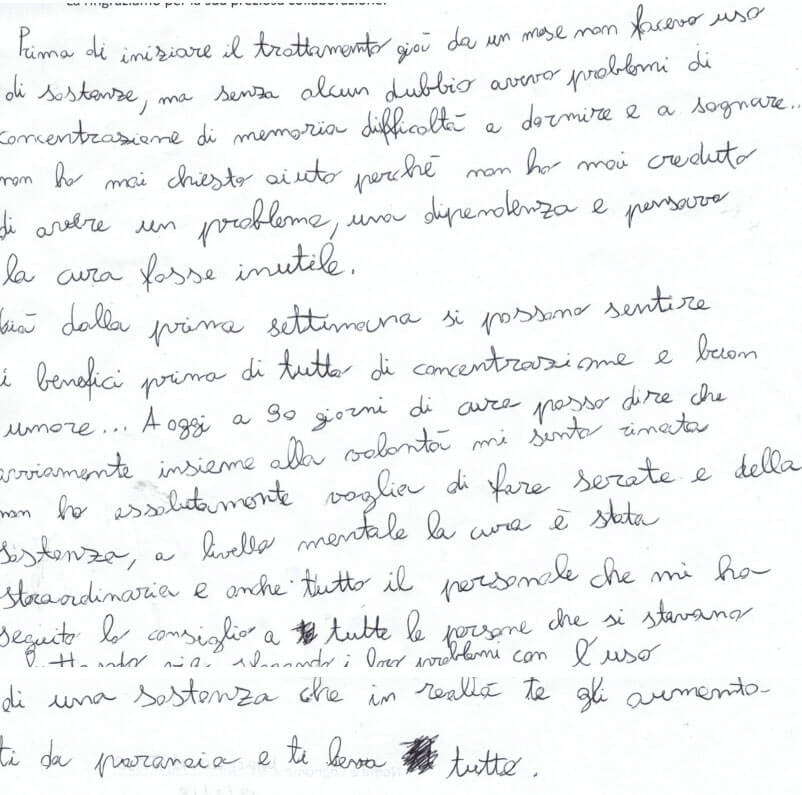 La ringraziamo per la sua preziosa collaborazione.
Prima di iniziare il trattamento già da un mese non facevo uso
di sostanze, ma senza alcun dubbio avevo problemi di
concentrazione di memoria difficoltà a dormire e a sognare...
non ho mai chiesto aiuto perché non ho mai creduto
di avere un problema, una dipendenza e pensavo
la cura fosse inutile.
già dalla prima settimana si possono sentire
i benefici prima di tutto di concentrazione e buon
umore... A oggi a 30 giorni di cura posso dire che
ovviamente insieme alla volontà mi sento rinata
non ho assolutamente voglia di fare serate e della
sostanza, a livello mentale la cura è stata
straordinaria e anche tutto il personale che mi ha
seguito lo consiglio a tutte le persone che si stavano
i loro problemi con l'uso
di una sostanza che in realtà te gli aumenta
ti da paranoia e ti leva tutto.